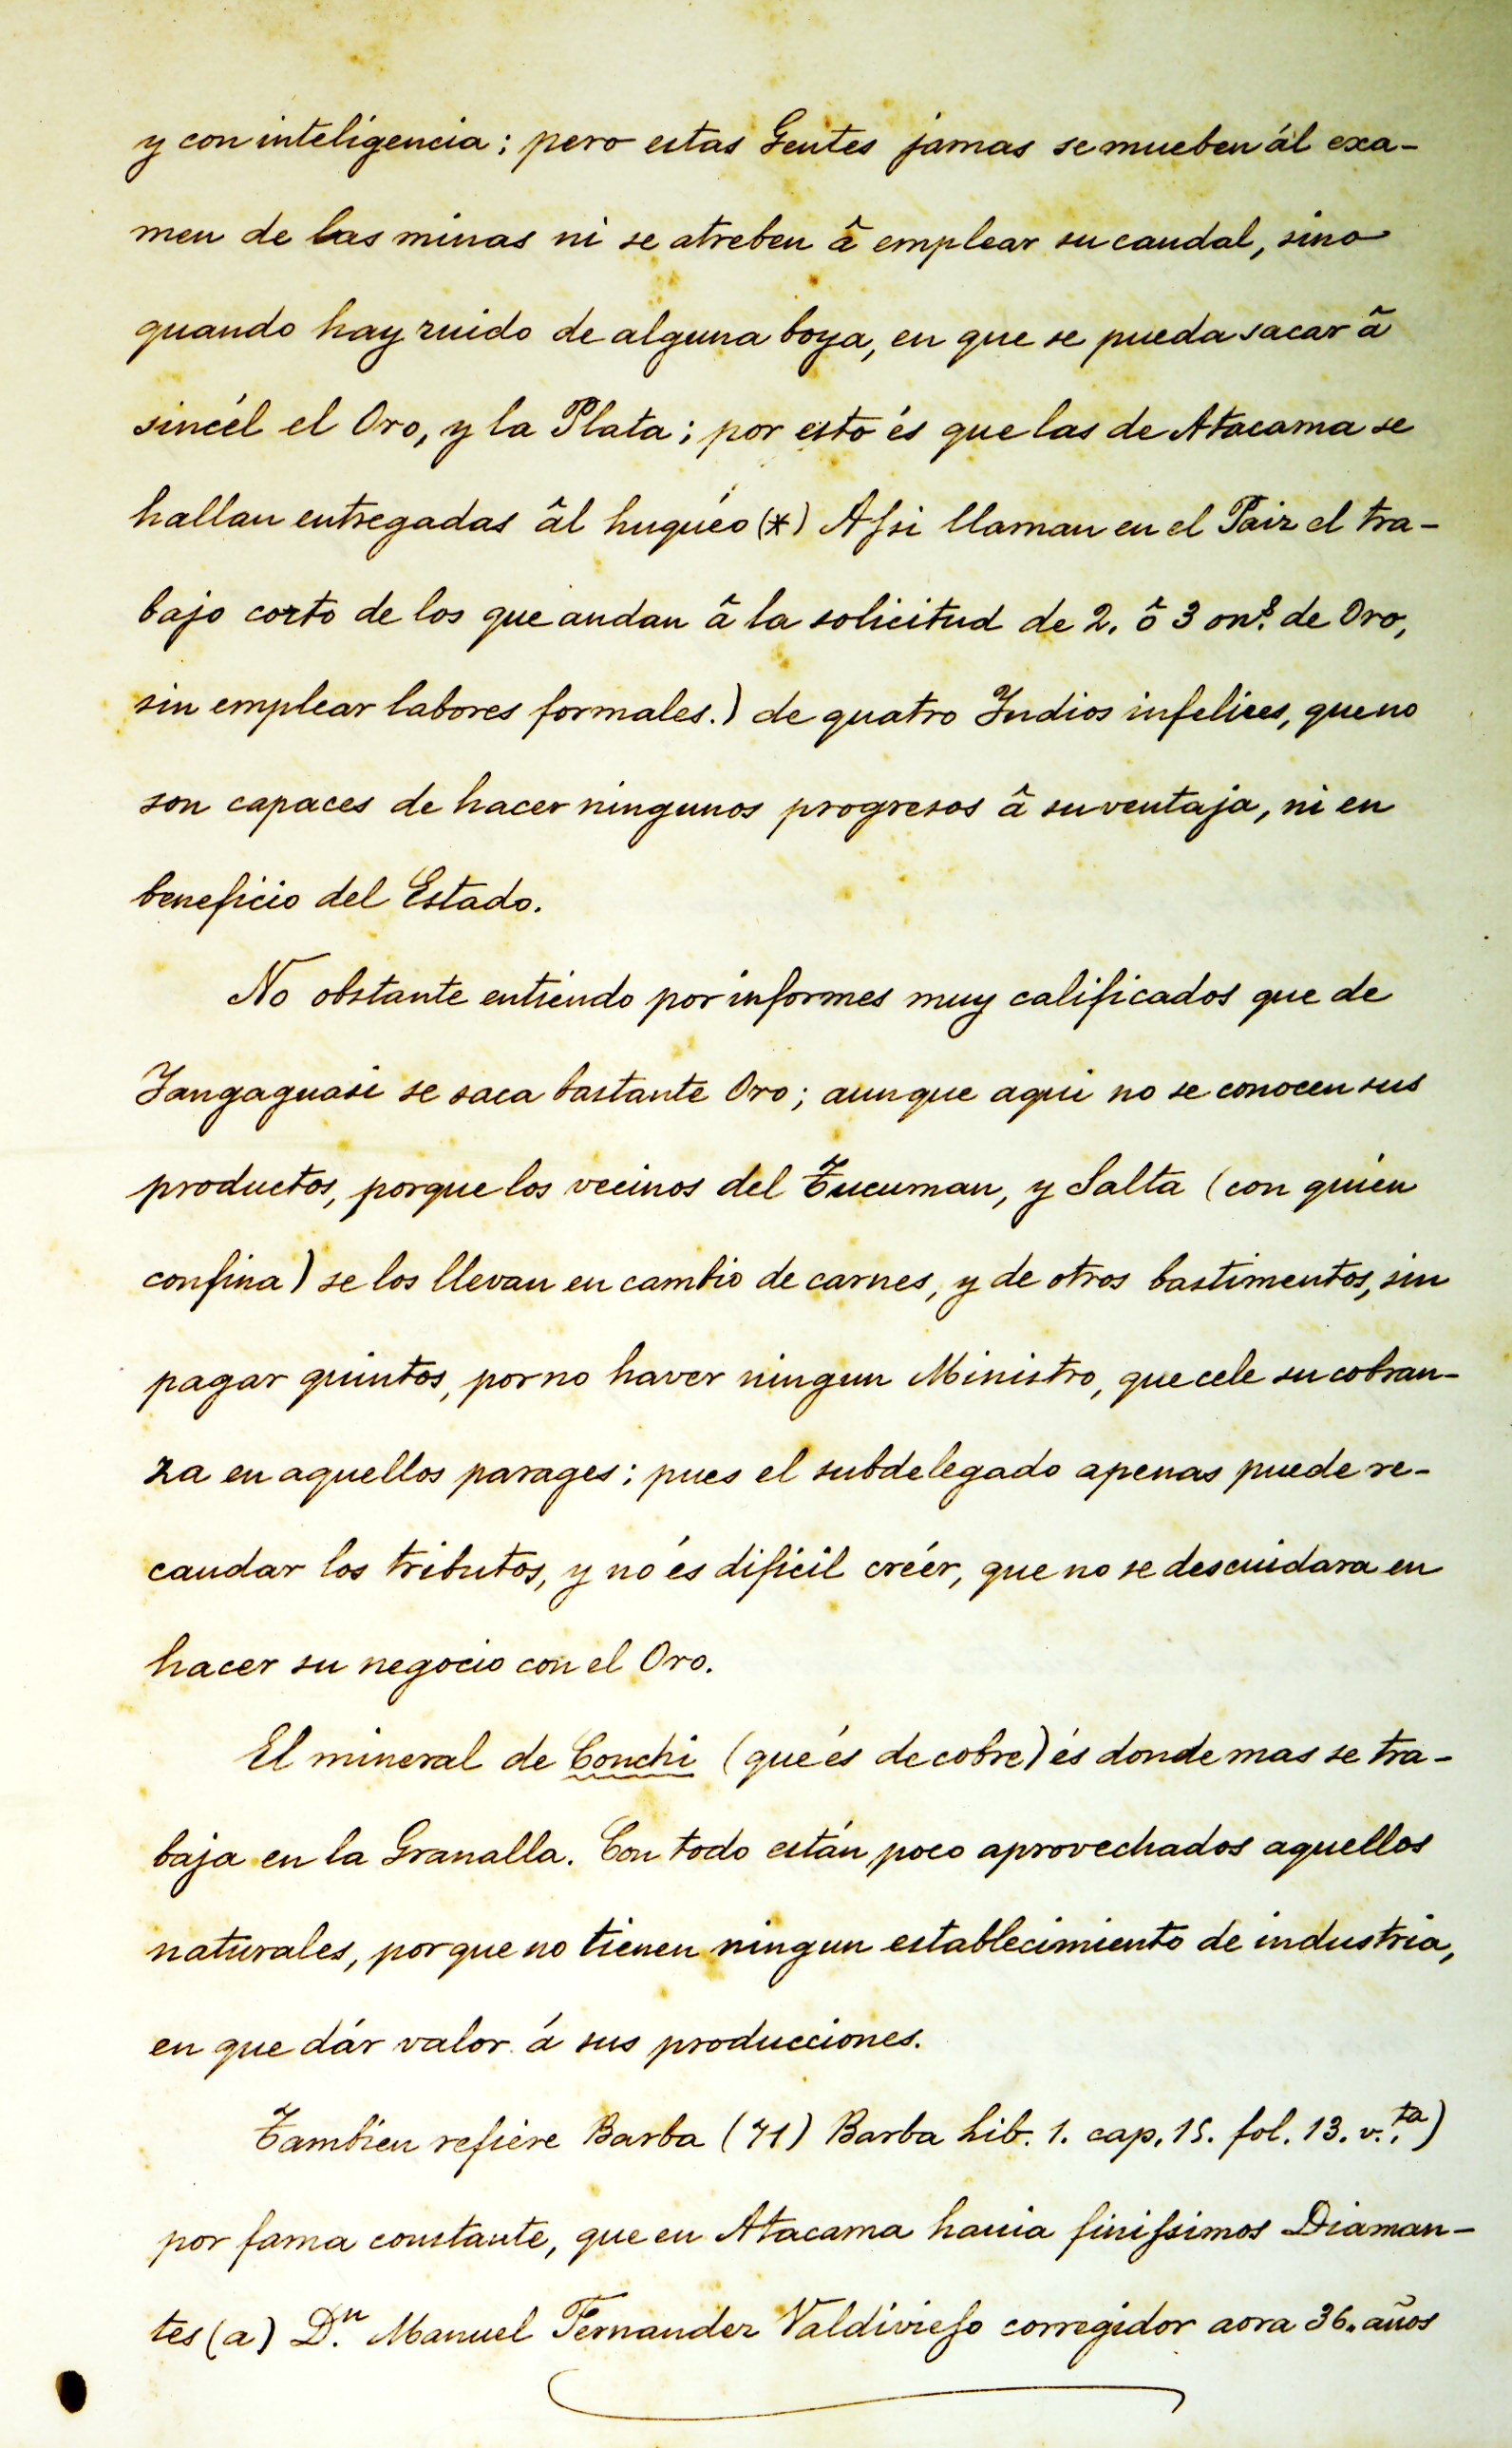 y con inteligencia; pero estas Gentes jamas se mueben ál exa-
men de las minas ni se atreben â emplear su caudal, sino
quando hay ruido de alguna boya, en que se pueda sacar â
sincél el Oro, y la Plata; por esto és que las de Atacama se
hallan entregadas âl huquéo (*) Assi llaman en el Paiz el tra-
bajo corto de los que andan â la solicitud de 2. ô 3 on.s de Oro,
sin emplear labores formales.) de quatro Indios infelices, que no
son capaces de hacer ningunos progresos â su ventaja, ni en
beneficio del Estado.
No obstante entiendo por informes muy calificados que de
Yangaguasi se saca bastante Oro; aunque aqui no se conocen sus
productos, porque los vecinos del Tucuman, y Salta (con quien
confina) se los llevan en cambio de carnes, y de otros bastimentos, sin
pagar quintos, por no haver ningun Ministro, que cele su cobran-
za en aquellos parages; pues el subdelegado apenas puede re-
caudar los tributos, y no és dificil créer, que no se descuidara en
hacer su negocio con el Oro.
El mineral de Conchi (que és de cobre) és donde mas se tra-
baja en la Granalla. Con todo están poco aprovechados aquellos
naturales, porque no tienen ningun establecimiento de industria,
en que dár valor á sus producciones.
Tambien refiere Barba (71) Barba Lib. 1. cap. 15. fol. 13. v.ta)
por fama constante, que en Atacama hauia finissimos Diaman-
tes (a) D.n Manuel Fernandez Valdivieso corregidor aora 36. años